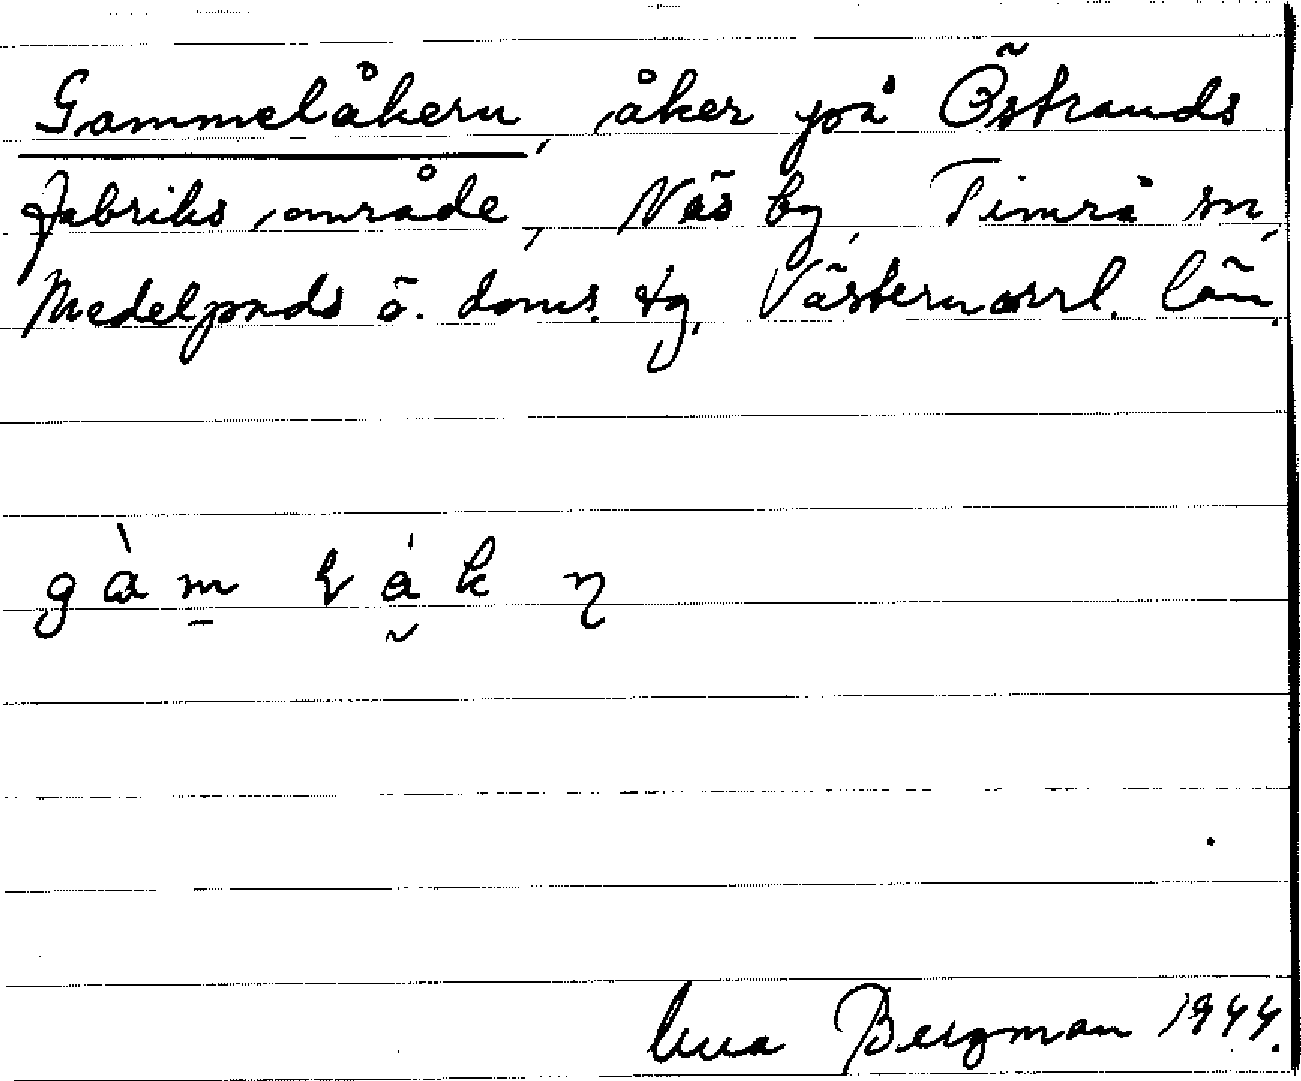 Gammelåkern, åker på Östrands
fabriks område, Näs by, Timrå sn,
Medelpads ö. doms. tg, Västernorrl. län.
Bergman 1944.